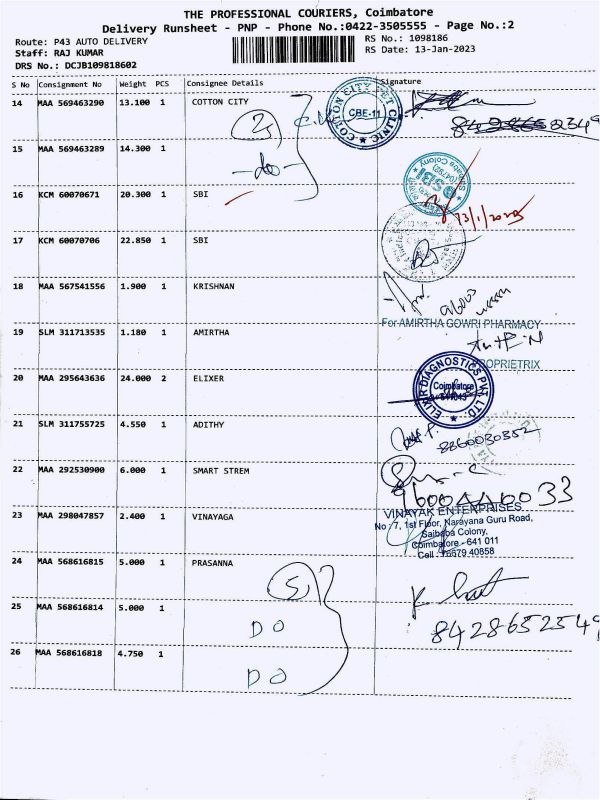 THE PROFESSIONAL COURIERS, Coimbatore
Delivery Runsheet - PNP - Phone No.:0422-3505555 - Page No.:2
Route: P43 AUTO DELIVERY RS No.: 1098186
Staff: RAJ KUMAR RS Date: 13-Jan-2023
DRS No.: DCJB109818602
S No Consignment No Weight PCS Consignee Details Signature
14 MAA 569463290 13.100 1 COTTON CITY
COTTON CITY PET CLINIC CBE-11
15 MAA 569463289 14.300 1
-do-
16 KCM 60070671 20.300 1 SBI
SBI
13/1/2023
17 KCM 60070706 22.850 1 SBI
18 MAA 567541556 1.900 1 KRISHNAN
19 SLM 311713535 1.180 1 AMIRTHA
For AMIRTHA GOWRI PHARMACY
PROPRIETRIX
20 MAA 295643636 24.000 2 ELIXER
ELIXIR DIAGNOSTICS PVT. LTD Coimbatore
21 SLM 311755725 4.550 1 ADITHY
8860030352
22 MAA 292530900 6.000 1 SMART STREM
23 MAA 298047857 2.400 1 VINAYAGA
VINAYAK ENTERPRISES
No : 7, 1st Floor, Narayana Guru Road,
Saibaba Colony,
Coimbatore - 641 011
24 MAA 568616815 5.000 1 PRASANNA
5
25 MAA 568616814 5.000 1
DO
8428652549
26 MAA 568616818 4.750 1
DO